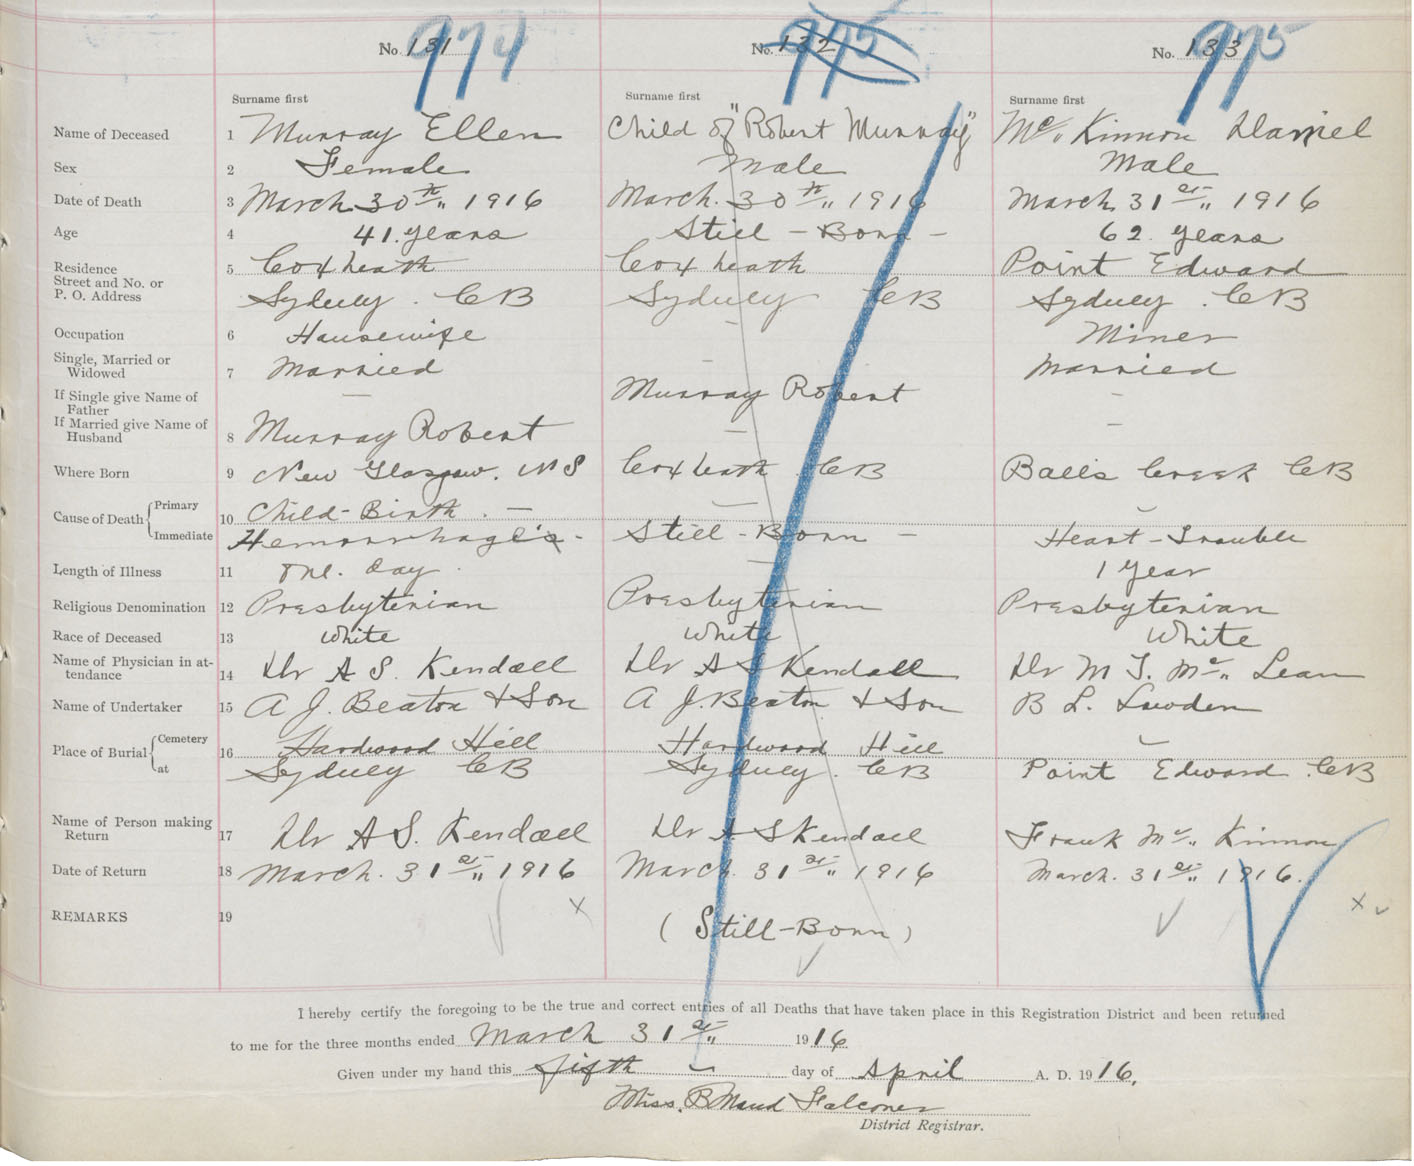 974 975 975
No. 131 No. 132 No. 133
Surname first Surname first Surname first
Name of Deceased 1 Murray Ellen Child of "Robert Murray" Mc. Kinnon Daniel
Sex 2 Female Male Male
Date of Death 3 March 30th, 1916 March. 30th, 1916 March 31st, 1916
Age 4 41. years Still - Born - 62 years
Residence 5 Coxheath Coxheath Point Edward
Street and No. or
P. O. Address Sydney. CB Sydney CB Sydney. CB
Occupation 6 Housewife - Miner
Single, Married or
Widowed 7 Married - Married
If Single give Name of
Father - Murray Robert -
If Married give Name of
Husband 8 Murray Robert - -
Where Born 9 New Glasgow. NS Coxheath CB Balls Creek CB
Cause of Death Primary 10 Child-Birth. - - -
Immediate Hemorrhage - Still-Born - Heart-Trouble
Length of Illness 11 one. day. - 1 Year
Religious Denomination 12 Presbyterian Presbyterian Presbyterian
Race of Deceased 13 White White White
Name of Physician in at-
tendance 14 Dr A S. Kendall Dr A S Kendall Dr M T. Mc. Lean
Name of Undertaker 15 A J. Beaton & Son A J. Beaton & Son B L. Lowden
Place of Burial Cemetery 16 Hardwood Hill Hardwood Hill -
at Sydney CB Sydney. CB Point Edward. CB
Name of Person making
Return 17 Dr A S. Kendall Dr A S Kendall Frank Mc. Kinnon
Date of Return 18 March. 31st, 1916 March. 31st, 1916 March. 31st, 1916.
REMARKS 19 (Still-Born)
I hereby certify the foregoing to be the true and correct entries of all Deaths that have taken place in this Registration District and been returned
to me for the three months ended March 31st, 1916
Given under my hand this fifth day of April A. D. 1916.
Miss. B Maud Falconer
District Registrar.